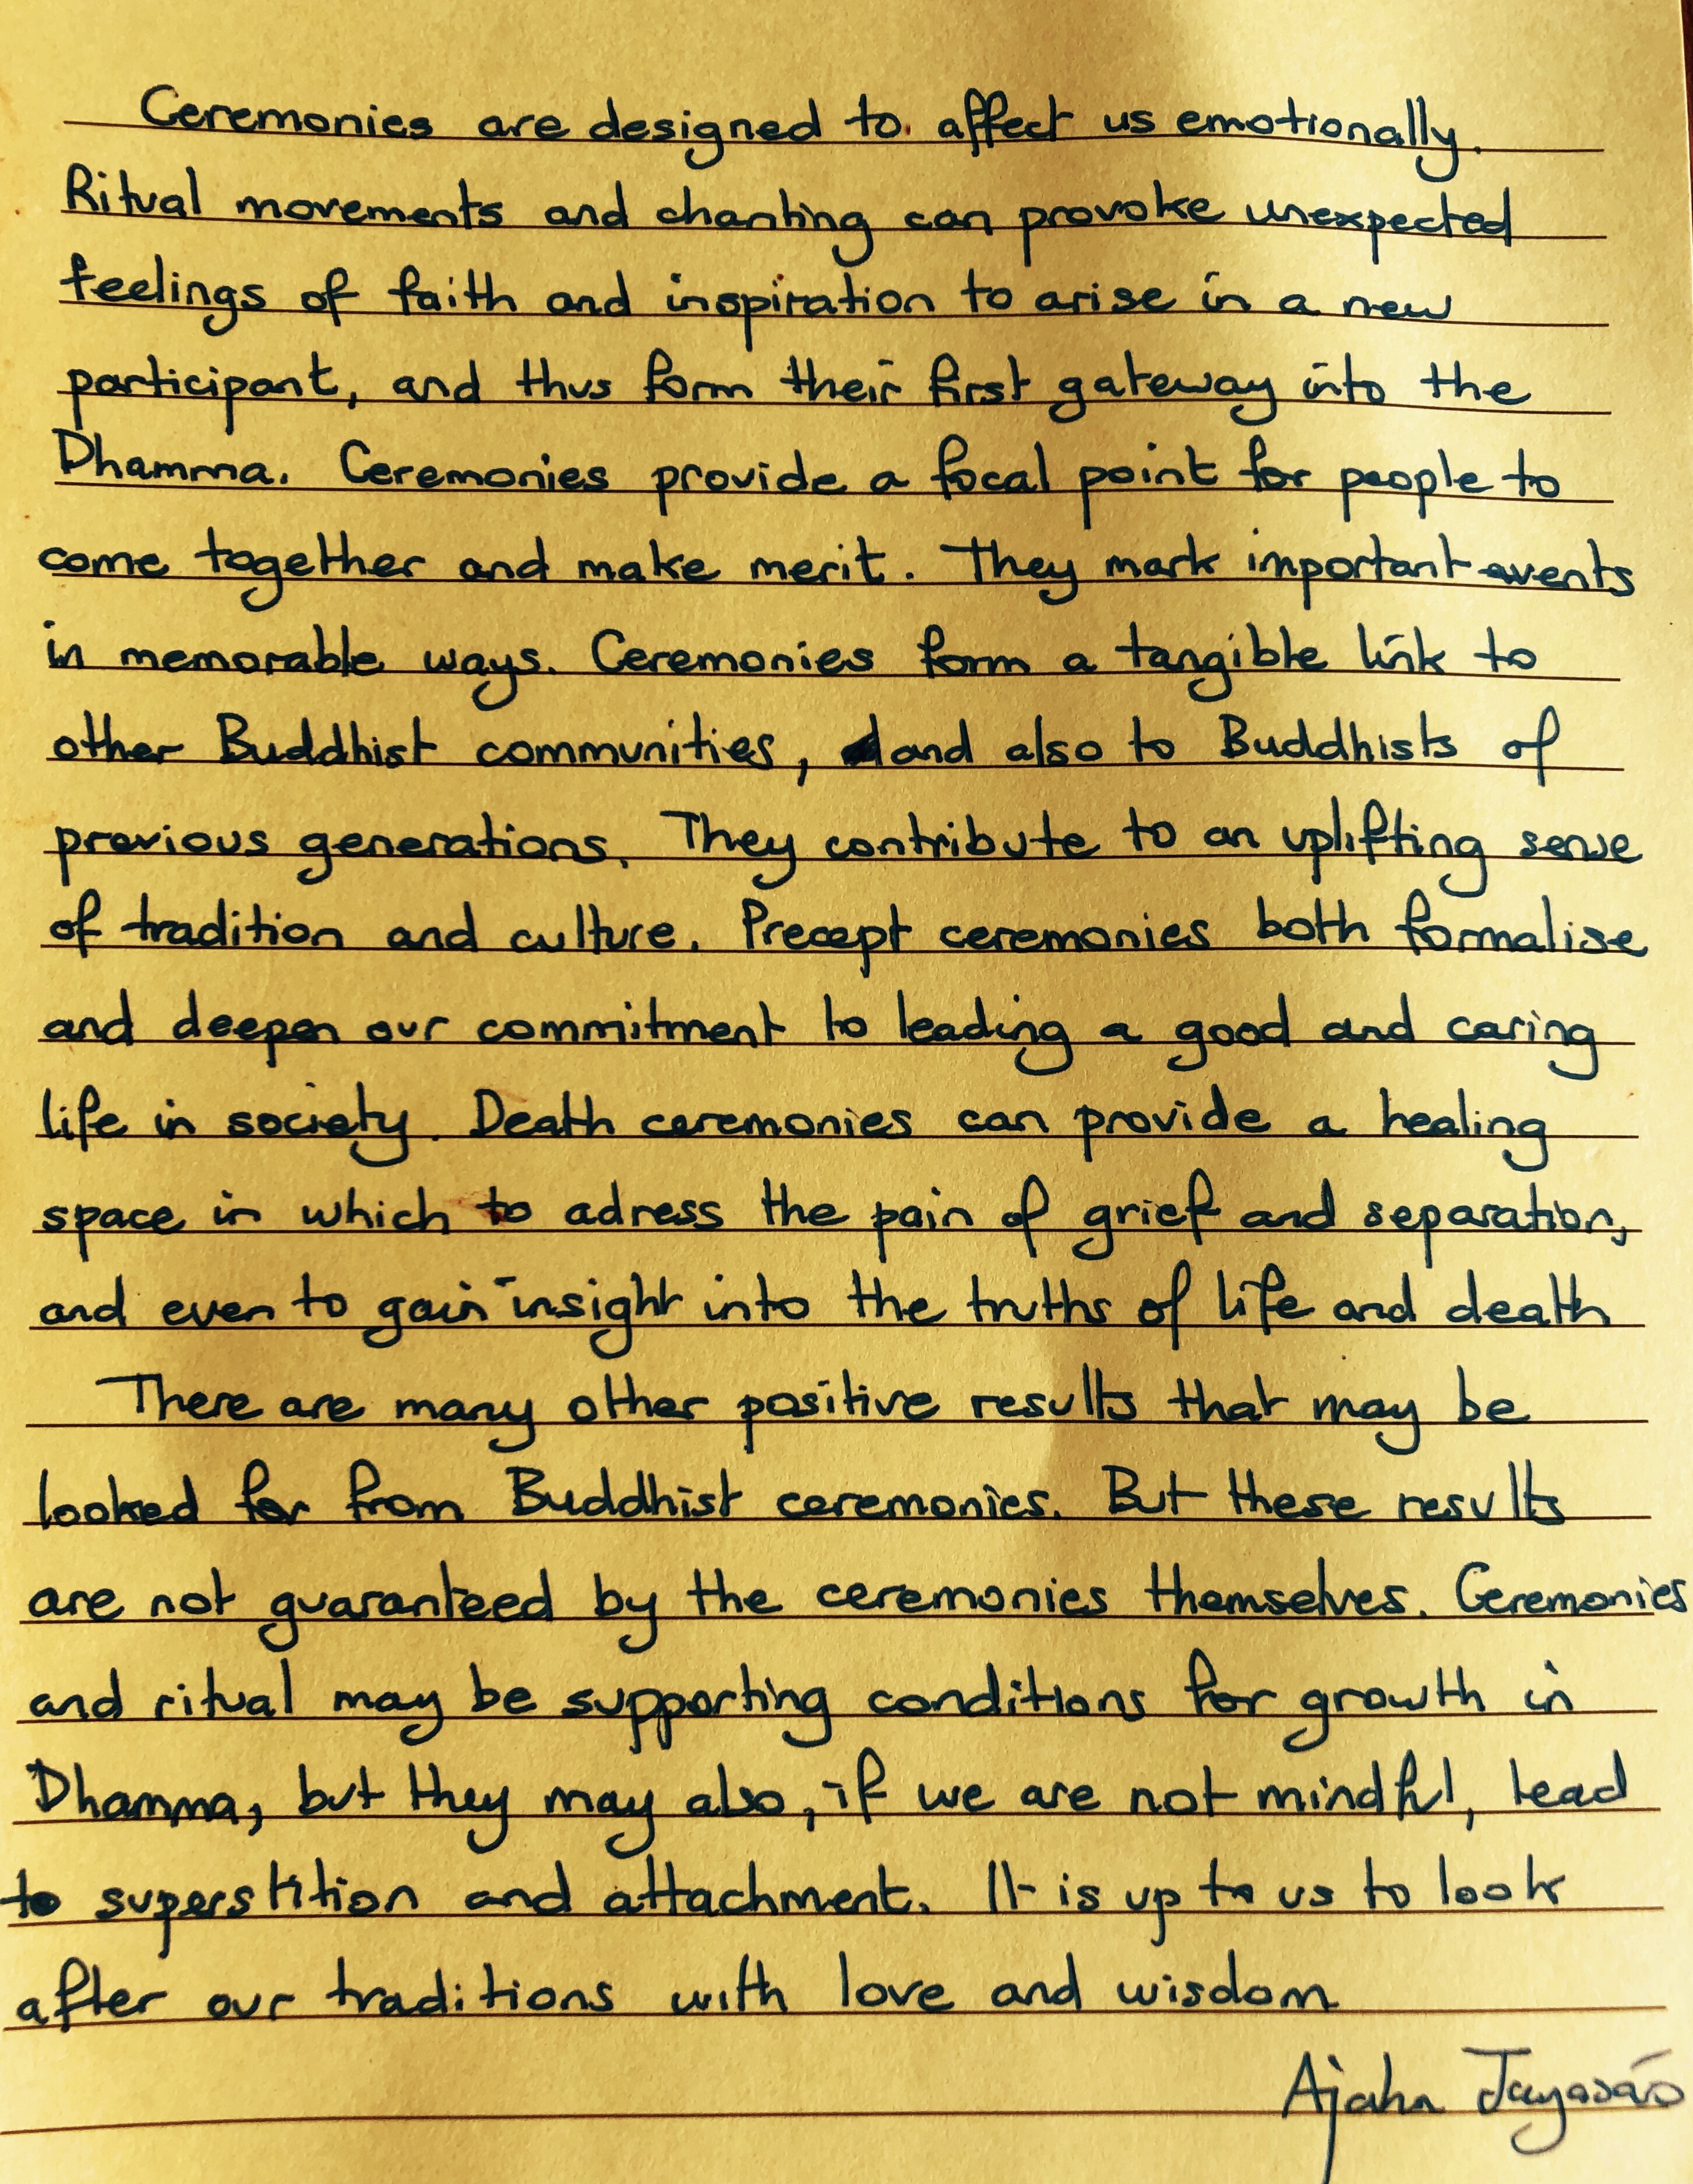 Ceremonies are designed to affect us emotionally.
Ritual movements and chanting can provoke unexpected
feelings of faith and inspiration to arise in a new
participant, and thus form their first gateway into the
Dhamma. Ceremonies provide a focal point for people to
come together and make merit. They mark important events
in memorable ways. Ceremonies form a tangible link to
other Buddhist communities, and also to Buddhists of
previous generations. They contribute to an uplifting sense
of tradition and culture. Precept ceremonies both formalise
and deepen our commitment to leading a good and caring
life in society. Death ceremonies can provide a healing
space in which to adress the pain of grief and separation,
and even to gain insight into the truths of life and death
There are many other positive results that may be
looked for from Buddhist ceremonies. But these results
are not guaranteed by the ceremonies themselves. Ceremonies
and ritual may be supporting conditions for growth in
Dhamma, but they may also, if we are not mindful, lead
to superstition and attachment. It is up to us to look
after our traditions with love and wisdom
Ajahn Jayasāro